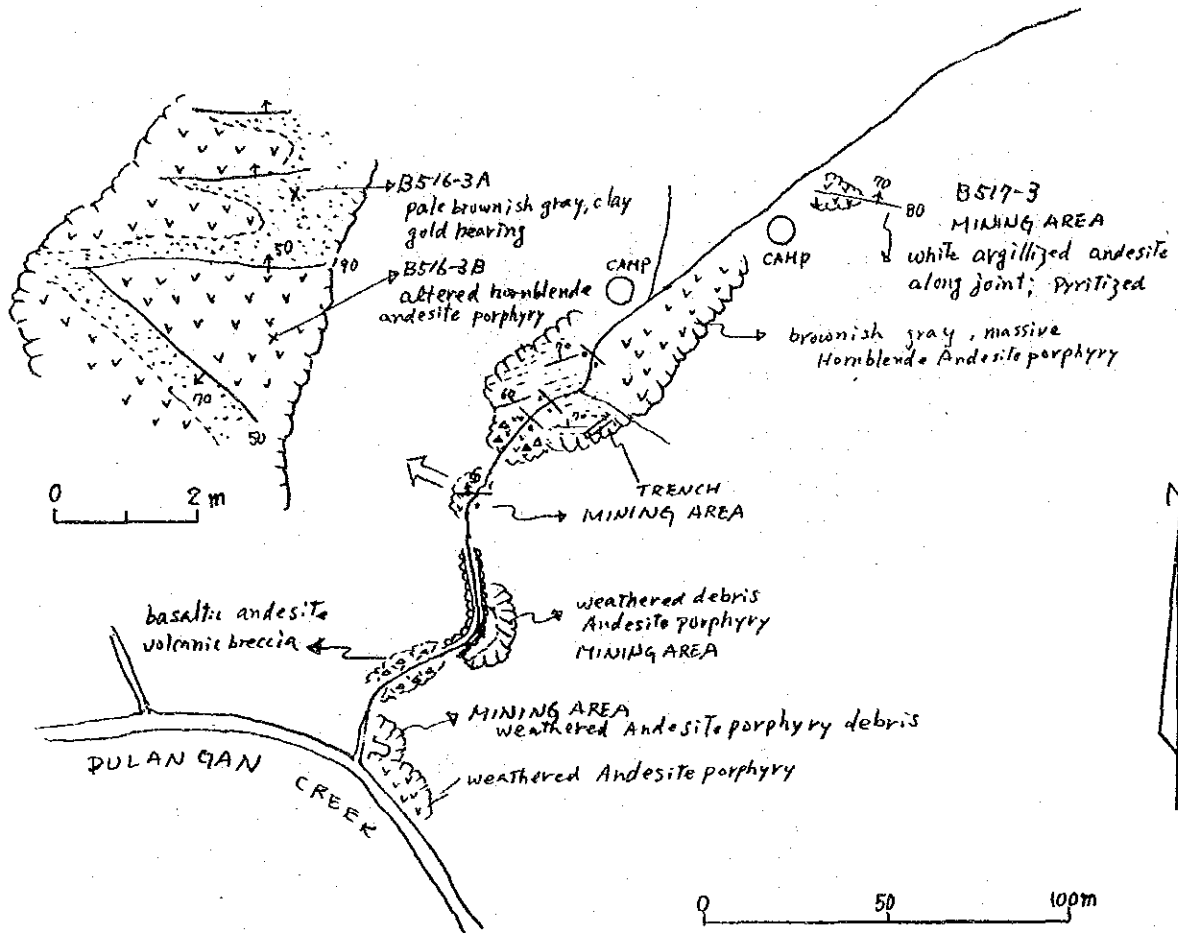 B516-3A
pale brownish gray, clay
gold bearing
50
90
B516-3B
altered hornblende
andesite porphyry
70
50
0 2 m
CAMP
CAMP
70
80
B517-3
MINING AREA
white argillized andesite
along joint; Pyritized
brownish gray, massive
Hornblende Andesite porphyry
70
60
70
TRENCH
MINING AREA
N
basaltic andesite
volcanic breccia
weathered debris
Andesite porphyry
MINING AREA
MINING AREA
weathered Andesite porphyry debris
weathered Andesite porphyry
DULANGAN
CREEK
0 50 100m